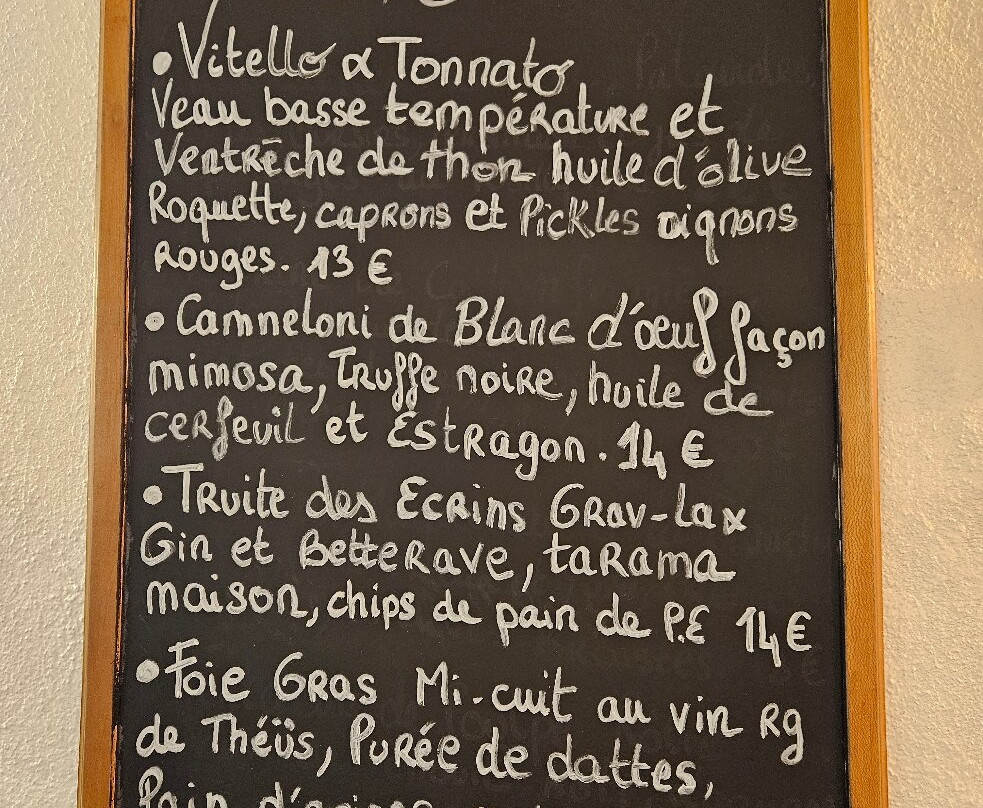 •Vitello α Tonnato
Veau basse température et
Ventrêche de thon huile d'olive
Roquette, caprons et Pickles oignons
Rouges. 13 €
• Camneloni de Blanc d'œuf façon
mimosa, Truffe noire, huile de
cerfeuil et Estragon. 14 €
• Truite des Ecrins Grav-lax
Gin et Betterave, tarama
maison, chips de pain de P.E 14 €
• Foie Gras Mi-cuit au vin Rg
de Théüs, Purée de dattes,
Pain d'épices